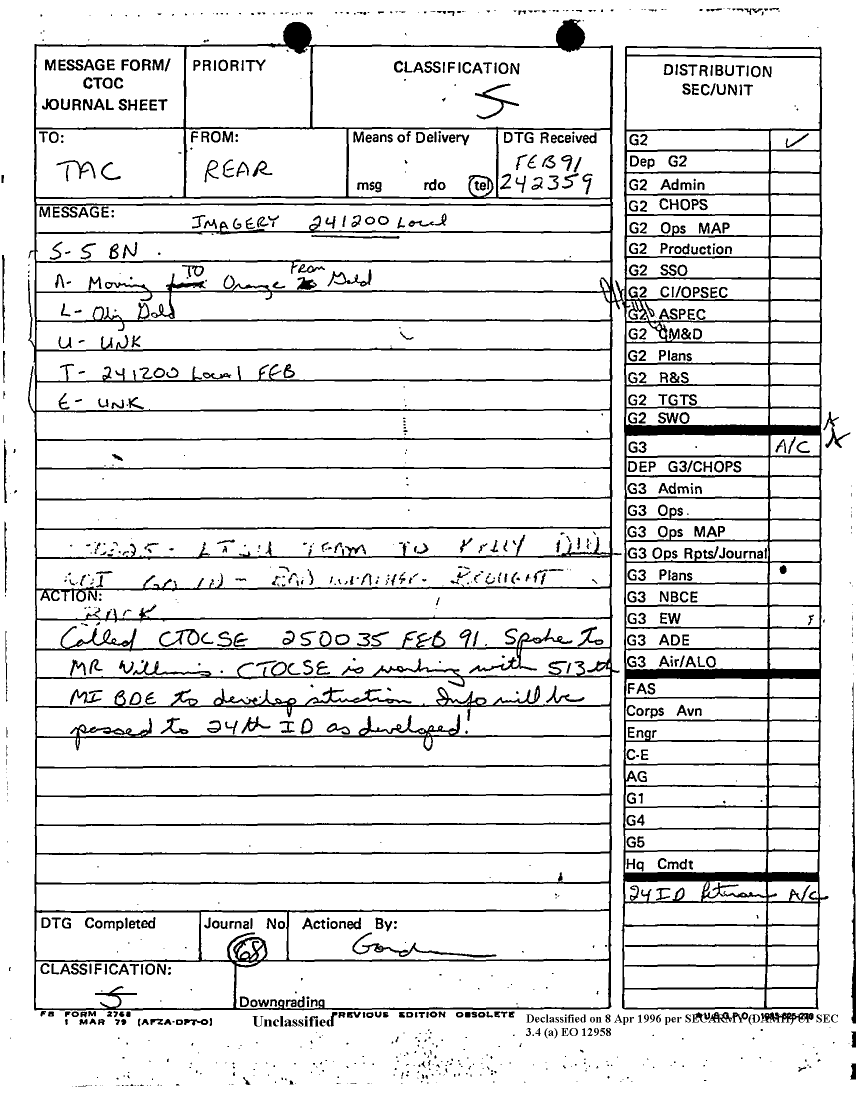 MESSAGE FORM/ CTOC JOURNAL SHEET
PRIORITY
CLASSIFICATION
S
TO:
TAC
FROM:
REAR
Means of Delivery
msg rdo tel
DTG Received
FEB 91
242359
MESSAGE:
IMAGERY 241200 Local
S- 5 BN
A- Moving TO Orange From Gold
L- Obj Gold
U- UNK
T- 241200 Local FEB
E- UNK
TEAM TO KELLY
NOT GO IN - BAD WEATHER- BROUGHT
ACTION:
BACK
Called CTOCSE 250035 FEB 91. Spoke to
MR Williams. CTOCSE is working with 513th
MI BDE to develop situation. Info will be
passed to 24th ID as developed!
DTG Completed
Journal No
68
Actioned By:
CLASSIFICATION:
S
Downgrading
DISTRIBUTION
SEC/UNIT
G2 ✓
Dep G2
G2 Admin
G2 CHOPS
G2 Ops MAP
G2 Production
G2 SSO
G2 CI/OPSEC
G2 ASPEC
G2 CM&D
G2 Plans
G2 R&S
G2 TGTS
G2 SWO
G3 A/C
DEP G3/CHOPS
G3 Admin
G3 Ops
G3 Ops MAP
G3 Ops Rpts/Journal
G3 Plans
G3 NBCE
G3 EW
G3 ADE
G3 Air/ALO
FAS
Corps Avn
Engr
C-E
AG
G1
G4
G5
Hq Cmdt
24 ID A/C
FB FORM 2768
1 MAR 79 (AFZA-DPT-O)
Unclassified
PREVIOUS EDITION OBSOLETE
Declassified on 8 Apr 1996 per SEC
3.4 (a) EO 12958